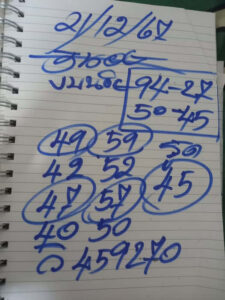 21/12/67
94-27
50-45
49 59
42 52 รูด
47 57 45
40 50
459270